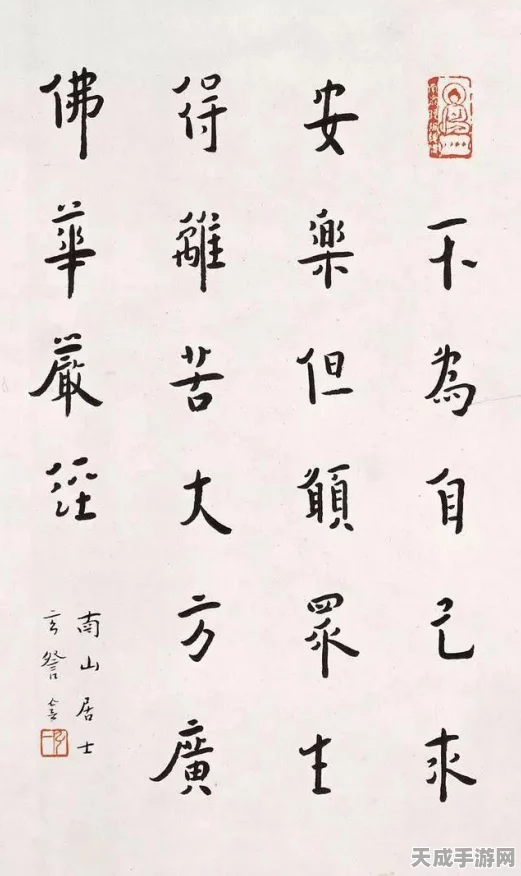 不為自己求
安樂但願眾生
得離苦大方廣
佛華嚴經
南山居士
天成手游网